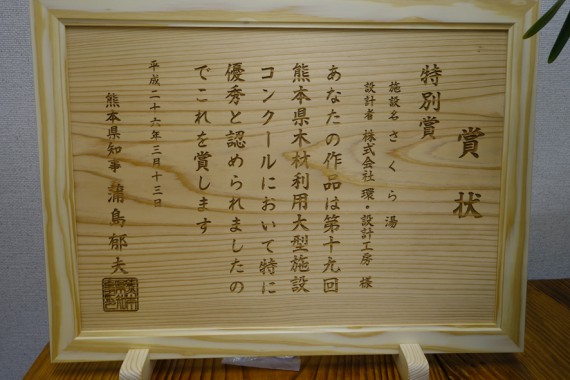 賞状
特別賞
施設名 さくら湯
設計者 株式会社 環・設計工房 様
あなたの作品は第十九回
熊本県木材利用大型施設
コンクールにおいて特に
優秀と認められましたの
でこれを賞します
平成二十六年三月十三日
熊本県知事 蒲島郁夫